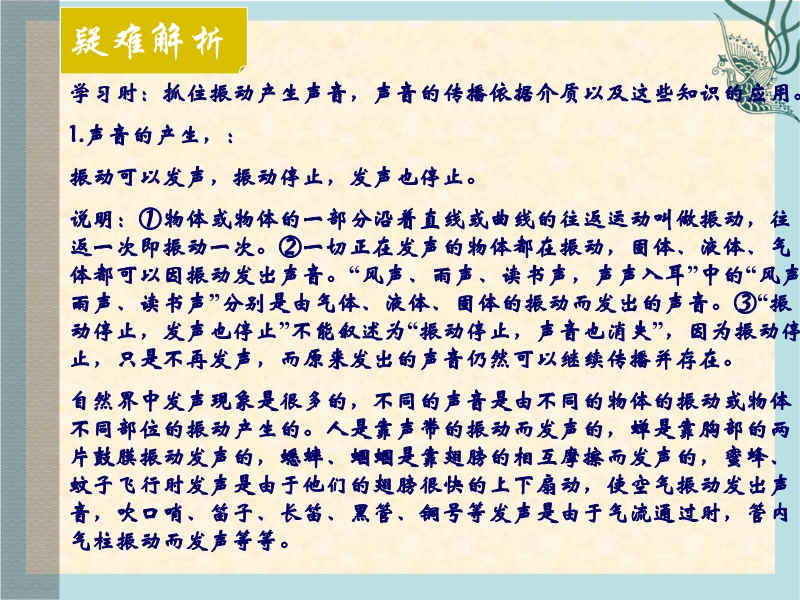 疑难解析
学习时：抓住振动产生声音，声音的传播依据介质以及这些知识的应用。
1.声音的产生，：
振动可以发声，振动停止，发声也停止。
说明：①物体或物体的一部分沿着直线或曲线的往返运动叫做振动，往
返一次即振动一次。②一切正在发声的物体都在振动，固体、液体、气
体都可以因振动发出声音。“风声、雨声、读书声，声声入耳”中的“风声
雨声、读书声”分别是由气体、液体、固体的振动而发出的声音。③“振
动停止，发声也停止”不能叙述为“振动停止，声音也消失”，因为振动停
止，只是不再发声，而原来发出的声音仍然可以继续传播并存在。
自然界中发声现象是很多的，不同的声音是由不同的物体的振动或物体
不同部位的振动产生的。人是靠声带的振动而发声的，蝉是靠胸部的两
片鼓膜振动发声的，蟋蟀、蝈蝈是靠翅膀的相互摩擦而发声的，蜜蜂、
蚊子飞行时发声是由于他们的翅膀很快的上下扇动，使空气振动发出声
音，吹口哨、笛子、长笛、黑管、铜号等发声是由于气流通过时，管内
气柱振动而发声等等。